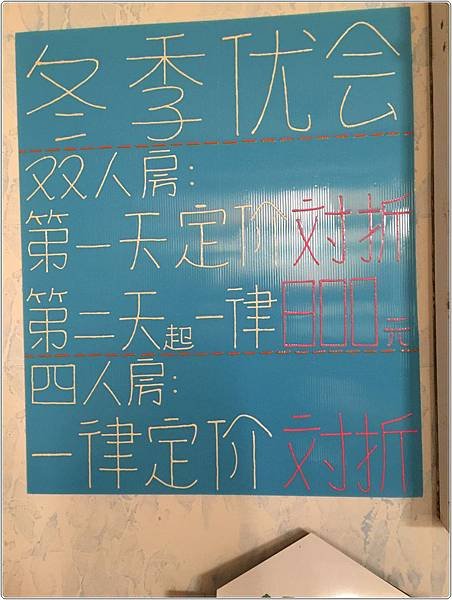 冬季优会
双人房:
第一天定价对折
第二天起一律800元
四人房:
一律定价对折